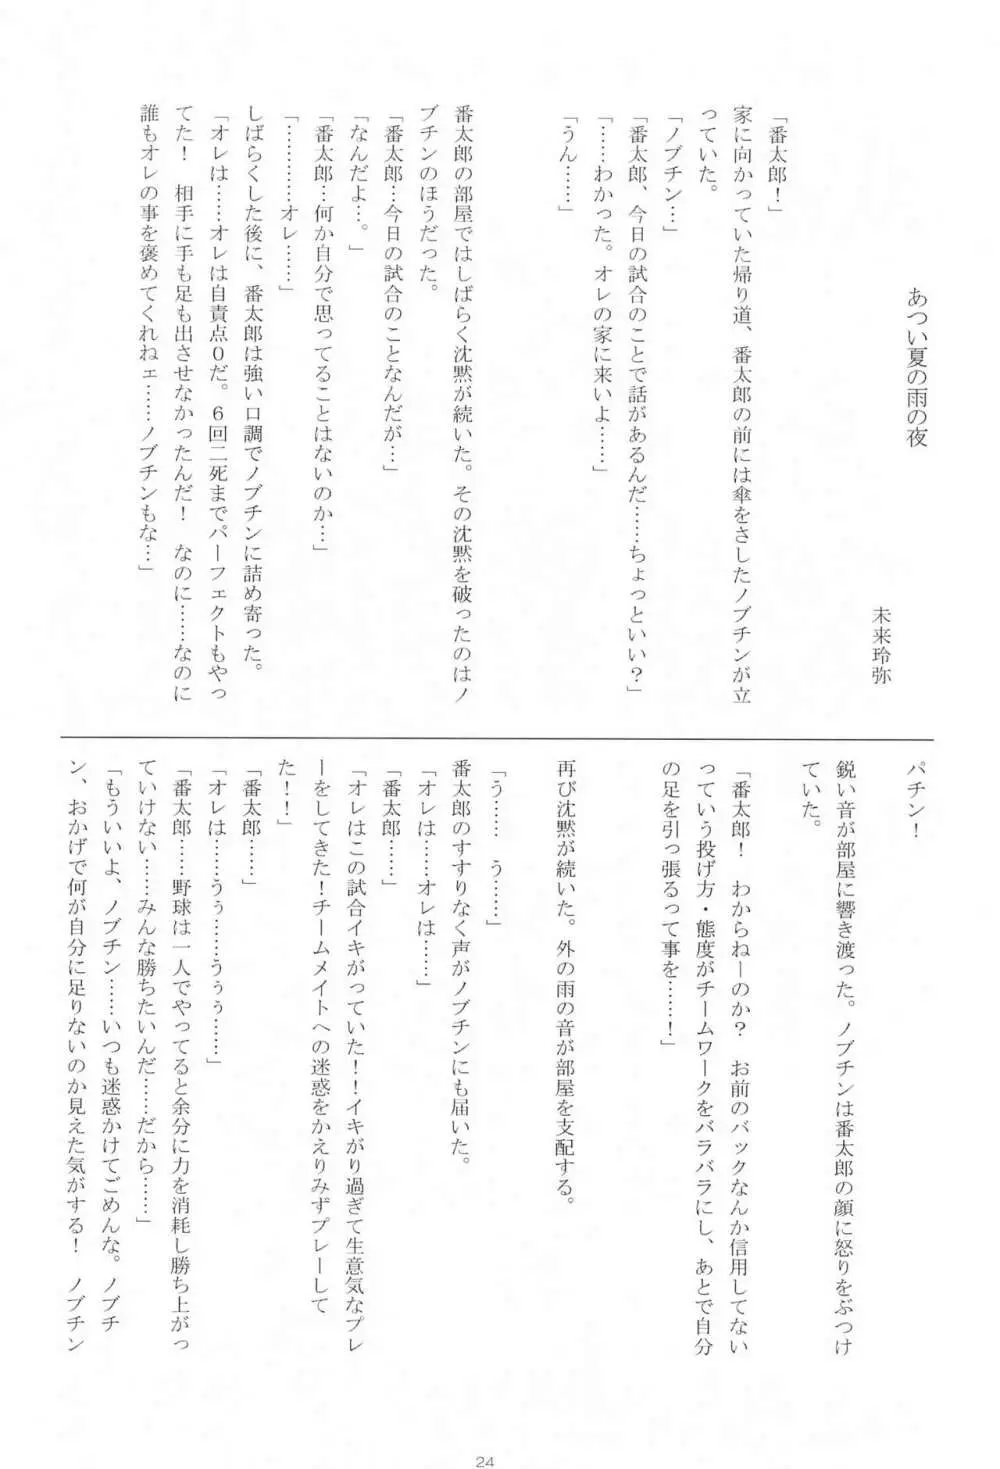 あつい夏の雨の夜
未来玲弥
「番太郎！」
家に向かっていた帰り道、番太郎の前には傘をさしたノブチンが立
っていた。
「ノブチン…」
「番太郎、今日の試合のことで話があるんだ……ちょっといい？」
「……わかった。オレの家に来いよ……」
「うん……」
番太郎の部屋ではしばらく沈黙が続いた。その沈黙を破ったのはノ
ブチンのほうだった。
「番太郎…今日の試合のことなんだが…」
「なんだよ…。」
「番太郎…何か自分で思ってることはないのか…」
「…………オレ……」
しばらくした後に、番太郎は強い口調でノブチンに詰め寄った。
「オレは……オレは自責点０だ。６回二死までパーフェクトもやっ
てた！　相手に手も足も出させなかったんだ！　なのに……なのに
誰もオレの事を褒めてくれねェ……ノブチンもな…」
パチン！
鋭い音が部屋に響き渡った。ノブチンは番太郎の顔に怒りをぶつけ
ていた。
「番太郎！　わからねーのか？　お前のバックなんか信用してない
っていう投げ方・態度がチームワークをバラバラにし、あとで自分
の足を引っ張るって事を……！」
再び沈黙が続いた。外の雨の音が部屋を支配する。
「う……　う……」
番太郎のすすりなく声がノブチンにも届いた。
「オレは……オレは……」
「番太郎……」
「オレはこの試合イキがっていた！！イキがり過ぎて生意気なプレ
ーをしてきた！チームメイトへの迷惑をかえりみずプレーして
た！！」
「番太郎……」
「オレは……うぅ……うぅぅ……」
「番太郎……野球は一人でやってると余分に力を消耗し勝ち上がっ
ていけない……みんな勝ちたいんだ……だから……」
「もういいよ、ノブチン……いつも迷惑かけてごめんな。ノブチ
ン、おかげで何が自分に足りないのか見えた気がする！　ノブチン
24